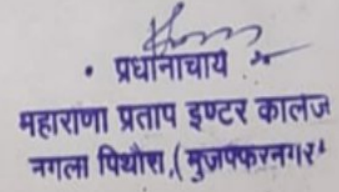 प्रधानाचार्य
महाराणा प्रताप इण्टर कालेज
नगला पिथौरा,(मुजफ्फरनगर)